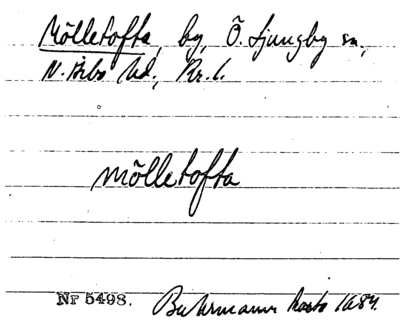 Mölletofta, by, Ö. Ljungby sn,
N. Åsbo hd., Kr. l.
mölletofta
Nr 5498. Buhrmanns karta 1684.